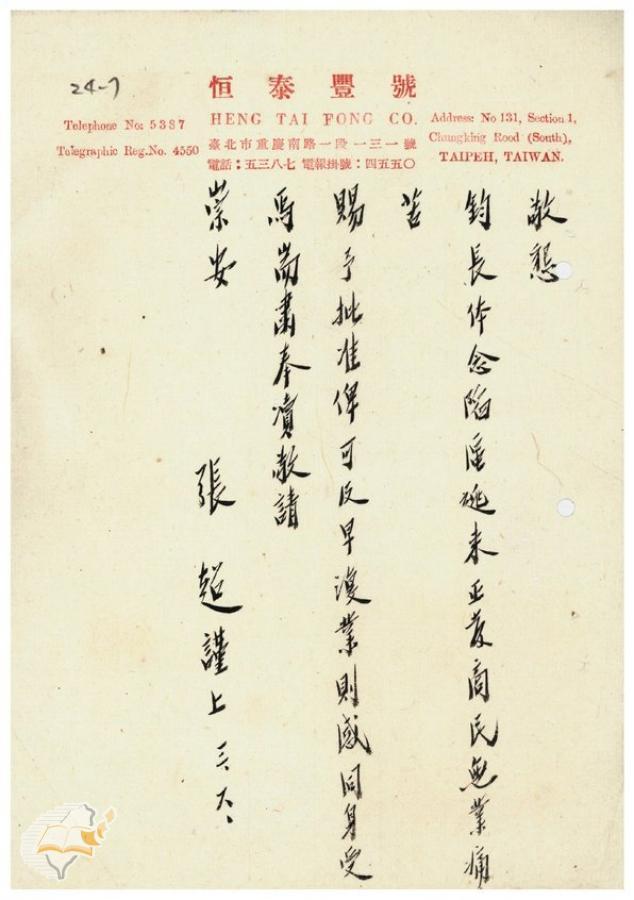 24-7
恒泰豐號
HENG TAI FONG CO.
Telephone No: 5387
Telegraphic Reg.No. 4550
臺北市重慶南路一段一三一號
電話：五三八七 電報掛號：四五五〇
Address: No 131, Section 1,
Chungking Rood (South),
TAIPEH, TAIWAN.
敬懇
鈞長体念陷區逃來正當商民無業痛
苦
賜予批准俾可及早復業則感同身受
焉耑肅奉瀆敬請
崇安
張超謹上 三、六、